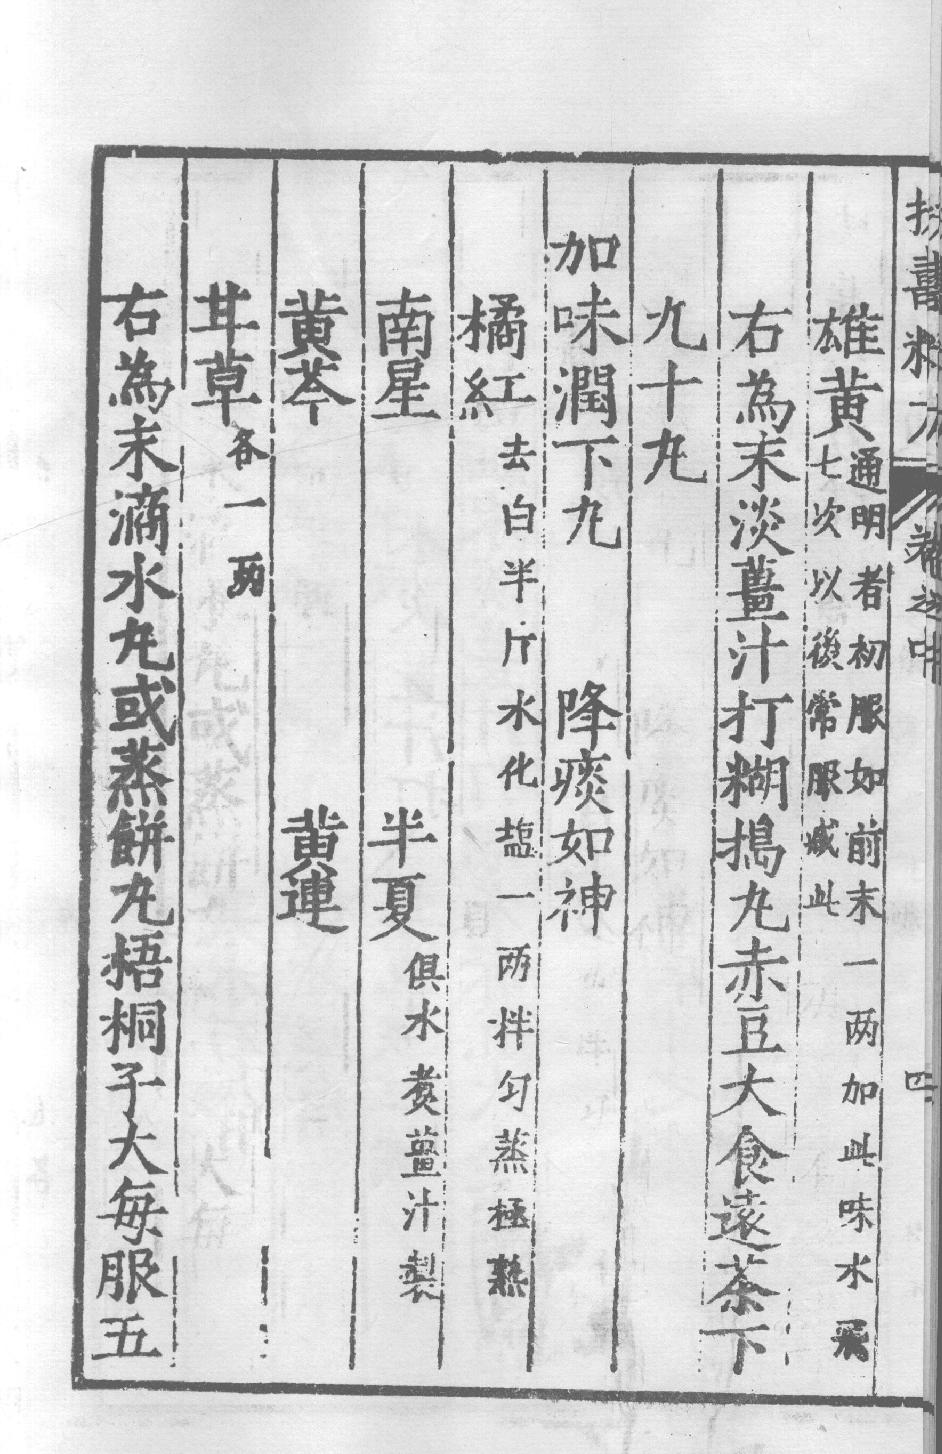 雄黄通明者初服如前末一两加此味水飛
七次以後常服減此
右為末淡薑汁打糊搗丸赤豆大食遠茶下
九十丸
加味潤下丸　降痰如神
橘紅去白半斤水化塩一两拌匀蒸極熟
南星　半夏俱水煑薑汁製
黄芩　黄連
甘草各一两
右為末滴水丸或蒸餅丸梧桐子大每服五